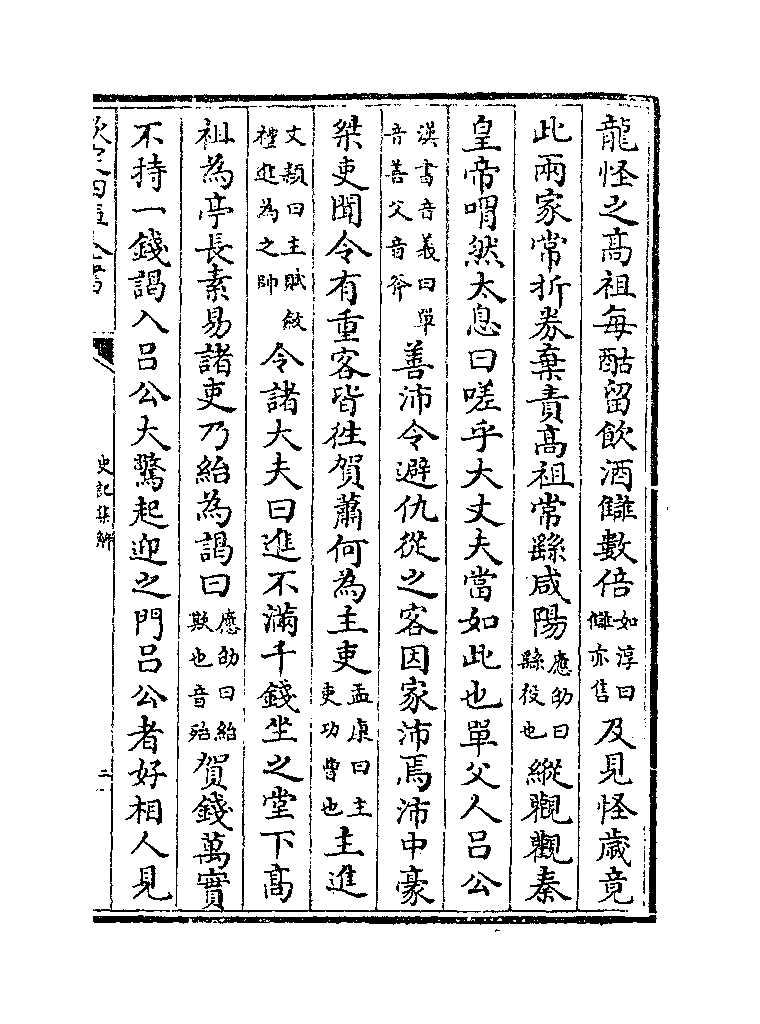 龍怪之髙祖每酤留飲酒讎數倍如淳曰讎亦售及見怪歳竟
此兩家常折券棄責髙祖常繇咸陽應劭曰繇役也縱觀觀秦
皇帝喟然太息曰嗟乎大丈夫當如此也單父人吕公
漢書音義曰單音善父音斧善沛令避仇從之客因家沛焉沛中豪
桀吏聞令有重客皆往賀蕭何為主吏孟康曰主吏功曹也主進
文穎曰主賦斂禮進為之帥令諸大夫曰進不滿千錢坐之堂下髙
祖為亭長素易諸吏乃紿為謁曰應劭曰紿欺也音殆賀錢萬實
不持一錢謁入吕公大驚起迎之門吕公者好相人見
欽定四庫全書
史記集解